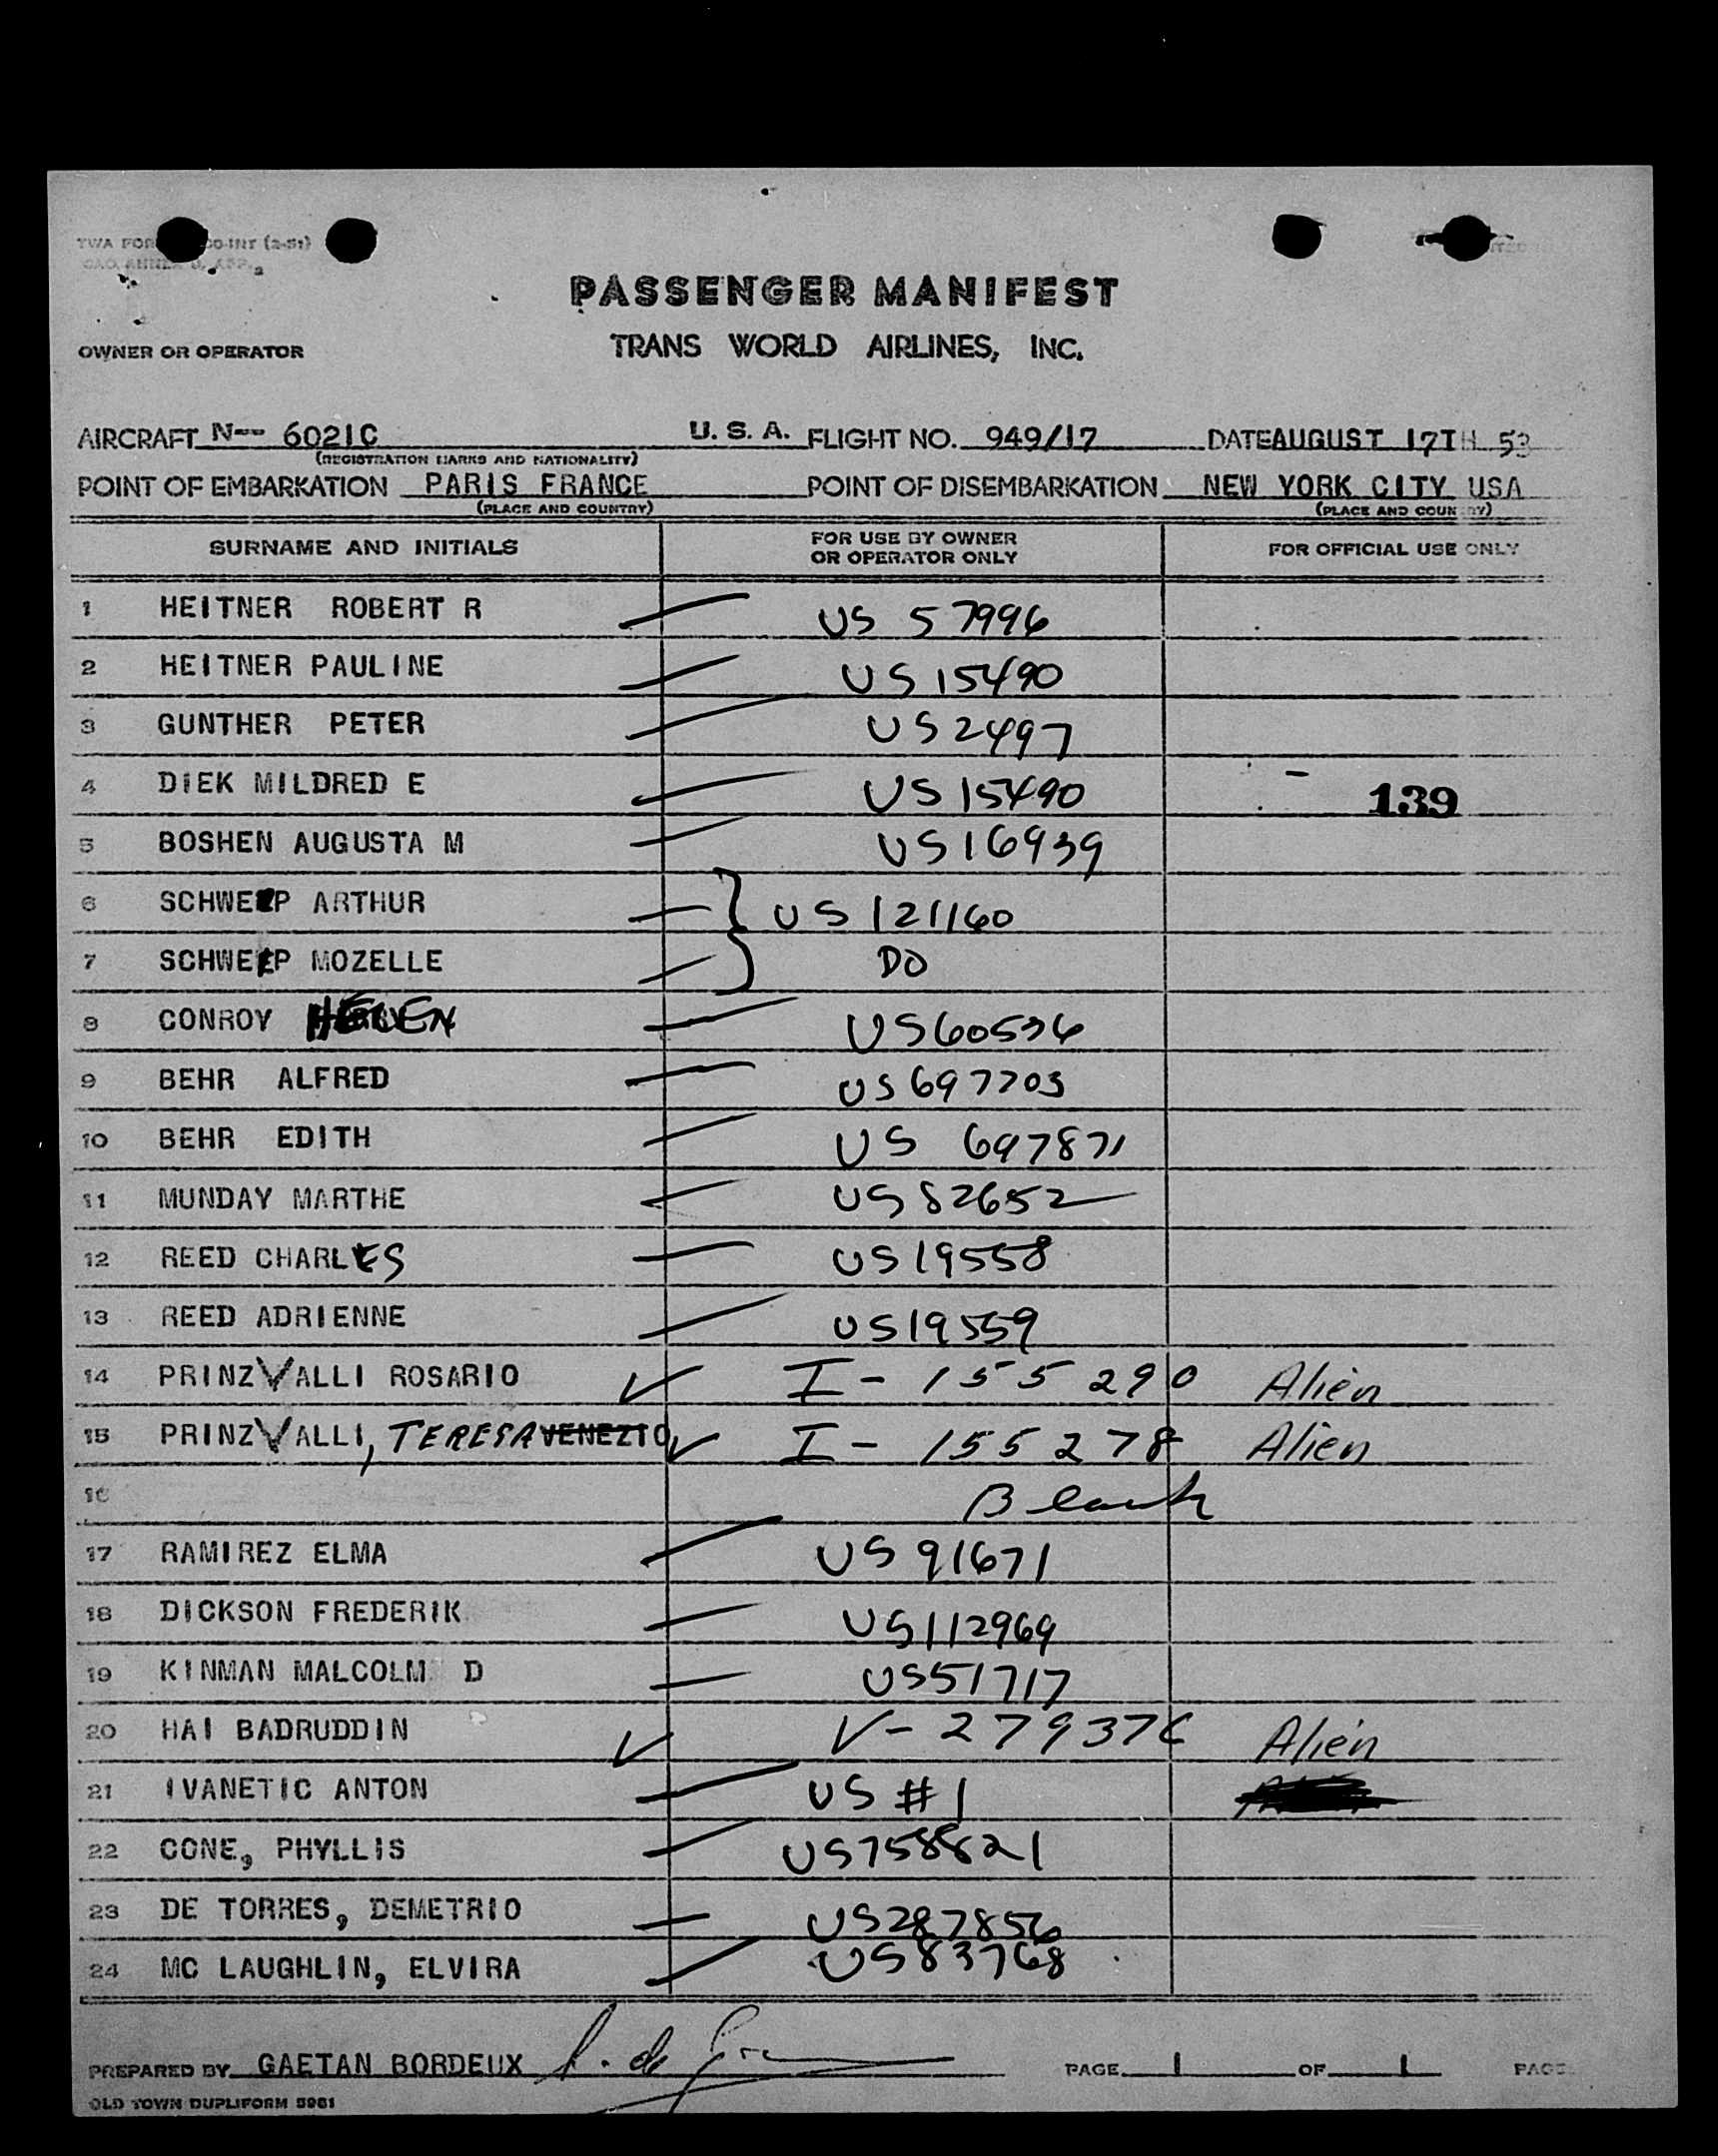 TWA FOR
PASSENGER MANIFEST
OWNER OR OPERATOR TRANS WORLD AIRLINES, INC.
AIRCRAFT N-- 6021C U. S. A. FLIGHT NO. 949/17 DATE AUGUST 17TH 53
(REGISTRATION MARKS AND NATIONALITY)
POINT OF EMBARKATION PARIS FRANCE POINT OF DISEMBARKATION NEW YORK CITY USA
(PLACE AND COUNTRY) (PLACE AND COUNTRY)
SURNAME AND INITIALS FOR USE BY OWNER OR OPERATOR ONLY FOR OFFICIAL USE ONLY
1 HEITNER ROBERT R US 57996
2 HEITNER PAULINE US 15490
3 GUNTHER PETER US 2497
4 DIEK MILDRED E US 15490 139
5 BOSHEN AUGUSTA M US 16939
6 SCHWEPP ARTHUR US 121160
7 SCHWEPP MOZELLE DO
8 CONROY HELEN US 60536
9 BEHR ALFRED US 697703
10 BEHR EDITH US 697871
11 MUNDAY MARTHE US 82652
12 REED CHARLES US 19558
13 REED ADRIENNE US 19559
14 PRINZVALLI ROSARIO I-155290 Alien
15 PRINZVALLI, TERESA VENEZIO I-155278 Alien
16 Blank
17 RAMIREZ ELMA US 91671
18 DICKSON FREDERIK US 112969
19 KINMAN MALCOLM D US 51717
20 HAI BADRUDDIN V-279376 Alien
21 IVANETIC ANTON US #1
22 CONE, PHYLLIS US 758821
23 DE TORRES, DEMETRIO US 287856
24 MC LAUGHLIN, ELVIRA US 83768
PREPARED BY GAETAN BORDEUX PAGE 1 OF 1 PAGE
OLD TOWN DUPLIFORM 5961